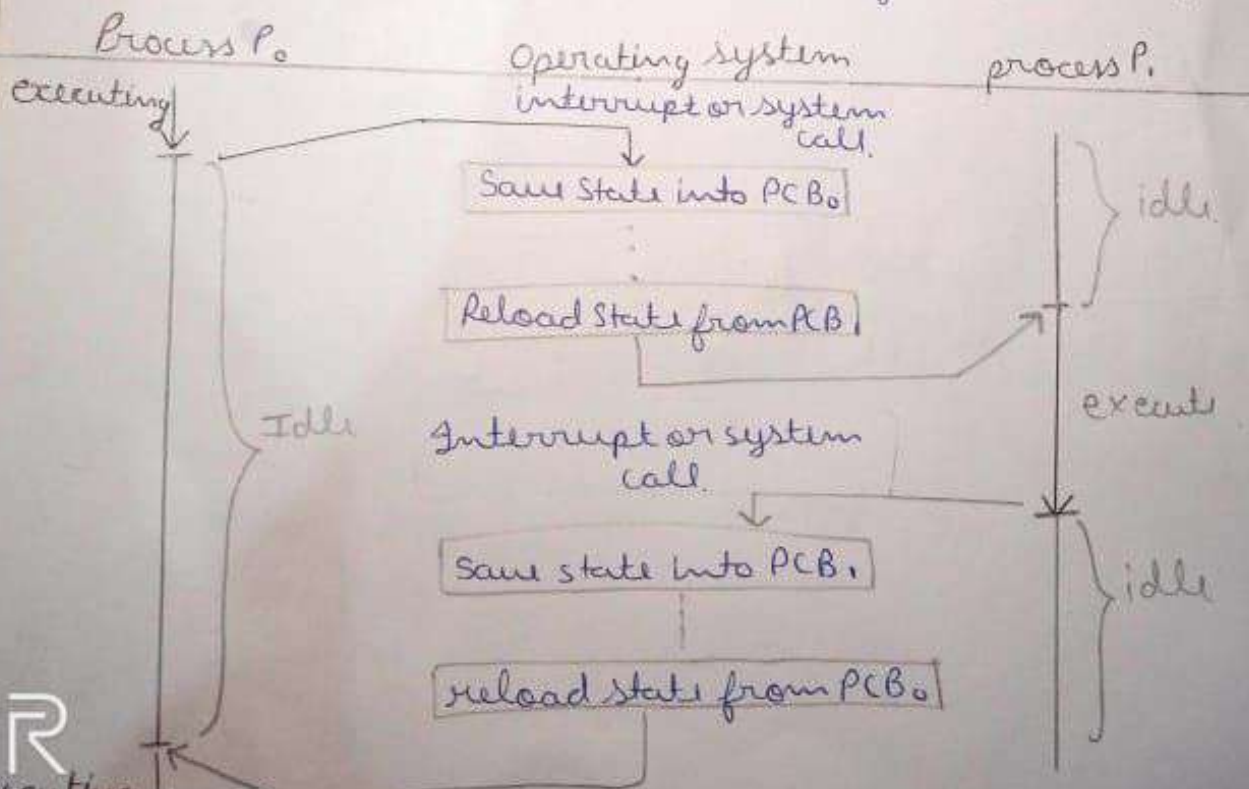 Process P₀
Operating system
process P₁
executing
interrupt or system
call.
Save State into PCB₀
idle.
Reload State from PCB₁
execute
Idle
Interrupt or system
call.
Save state into PCB₁
idle
reload state from PCB₀
R